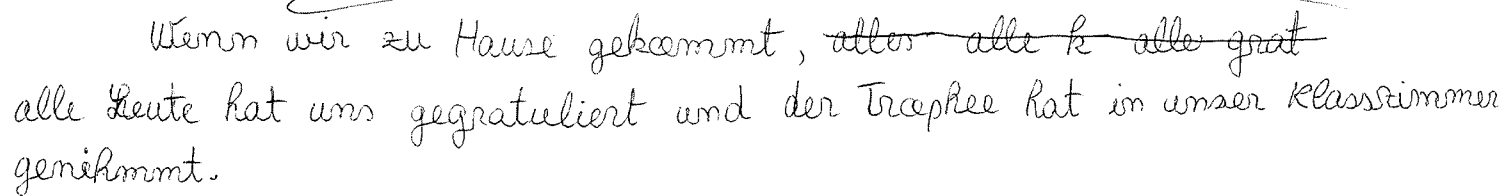 Wenn wir zu Hause gekommt, alles alle k alle grat
alle Leute hat uns gegratuliert und der Trophee hat in unser Klasszimmer
genihmmt.